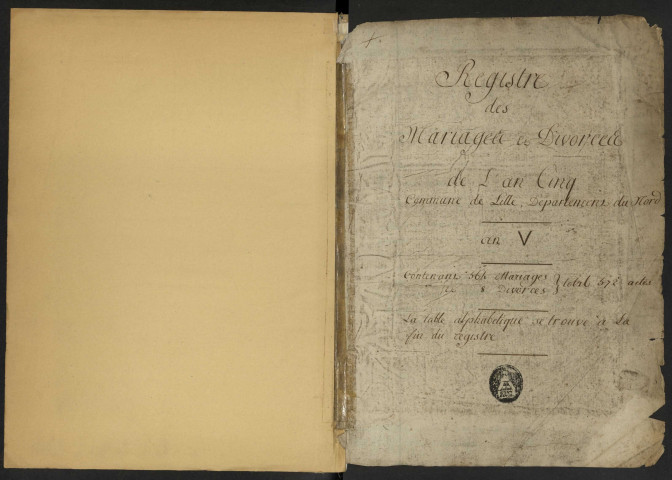 Registre
des
Mariages et Divorces
de L'an Cinq
Commune de Lille, Département du Nord
an V
Contenant Mariages
Divorces total actes
La table alphabétique se trouve à La
fin du registre